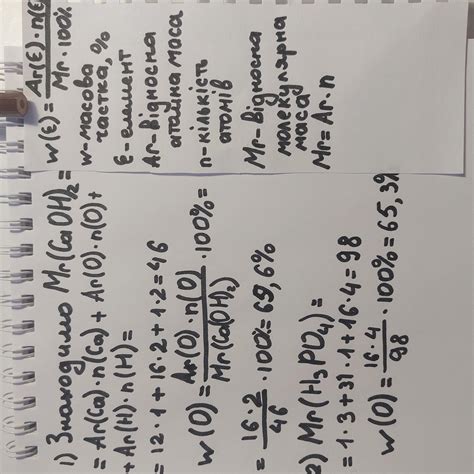 w(E) = Ar(E) · n(E) / Mr · 100%
w - масова
частка, %
E - елемент
Ar - відносна
атомна маса
n - кількість
атомів
Mr - відносна
молекулярна
маса
Mr = Ar · n
1) Знаходимо Mr(Ca(OH)₂ =
= Ar(Ca) · n(Ca) + Ar(O) · n(O) +
+ Ar(H) · n(H) =
= 12 · 1 + 16 · 2 + 1 · 2 = 46
w(O) = Ar(O) · n(O) / Mr(Ca(OH)₂) · 100% =
= 16 · 2 / 46 · 100% = 69,6%
2) Mr(H₃PO₄) =
= 1 · 3 + 31 · 1 + 16 · 4 = 98
w(O) = 16 · 4 / 98 · 100% = 65,3%